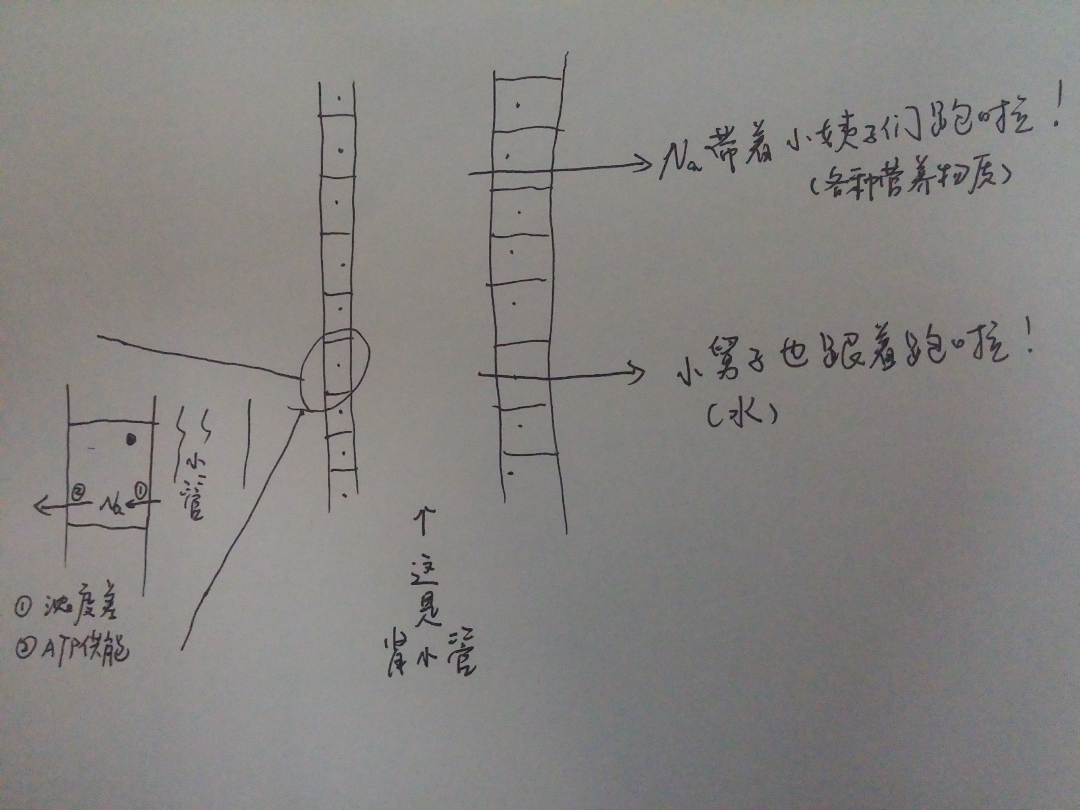 Na带着小姨子们跑啦！
（各种营养物质）
小舅子也跟着跑啦！
（水）
小管
② Na ①
①浓度差
②ATP供能
↑
这是
肾小管